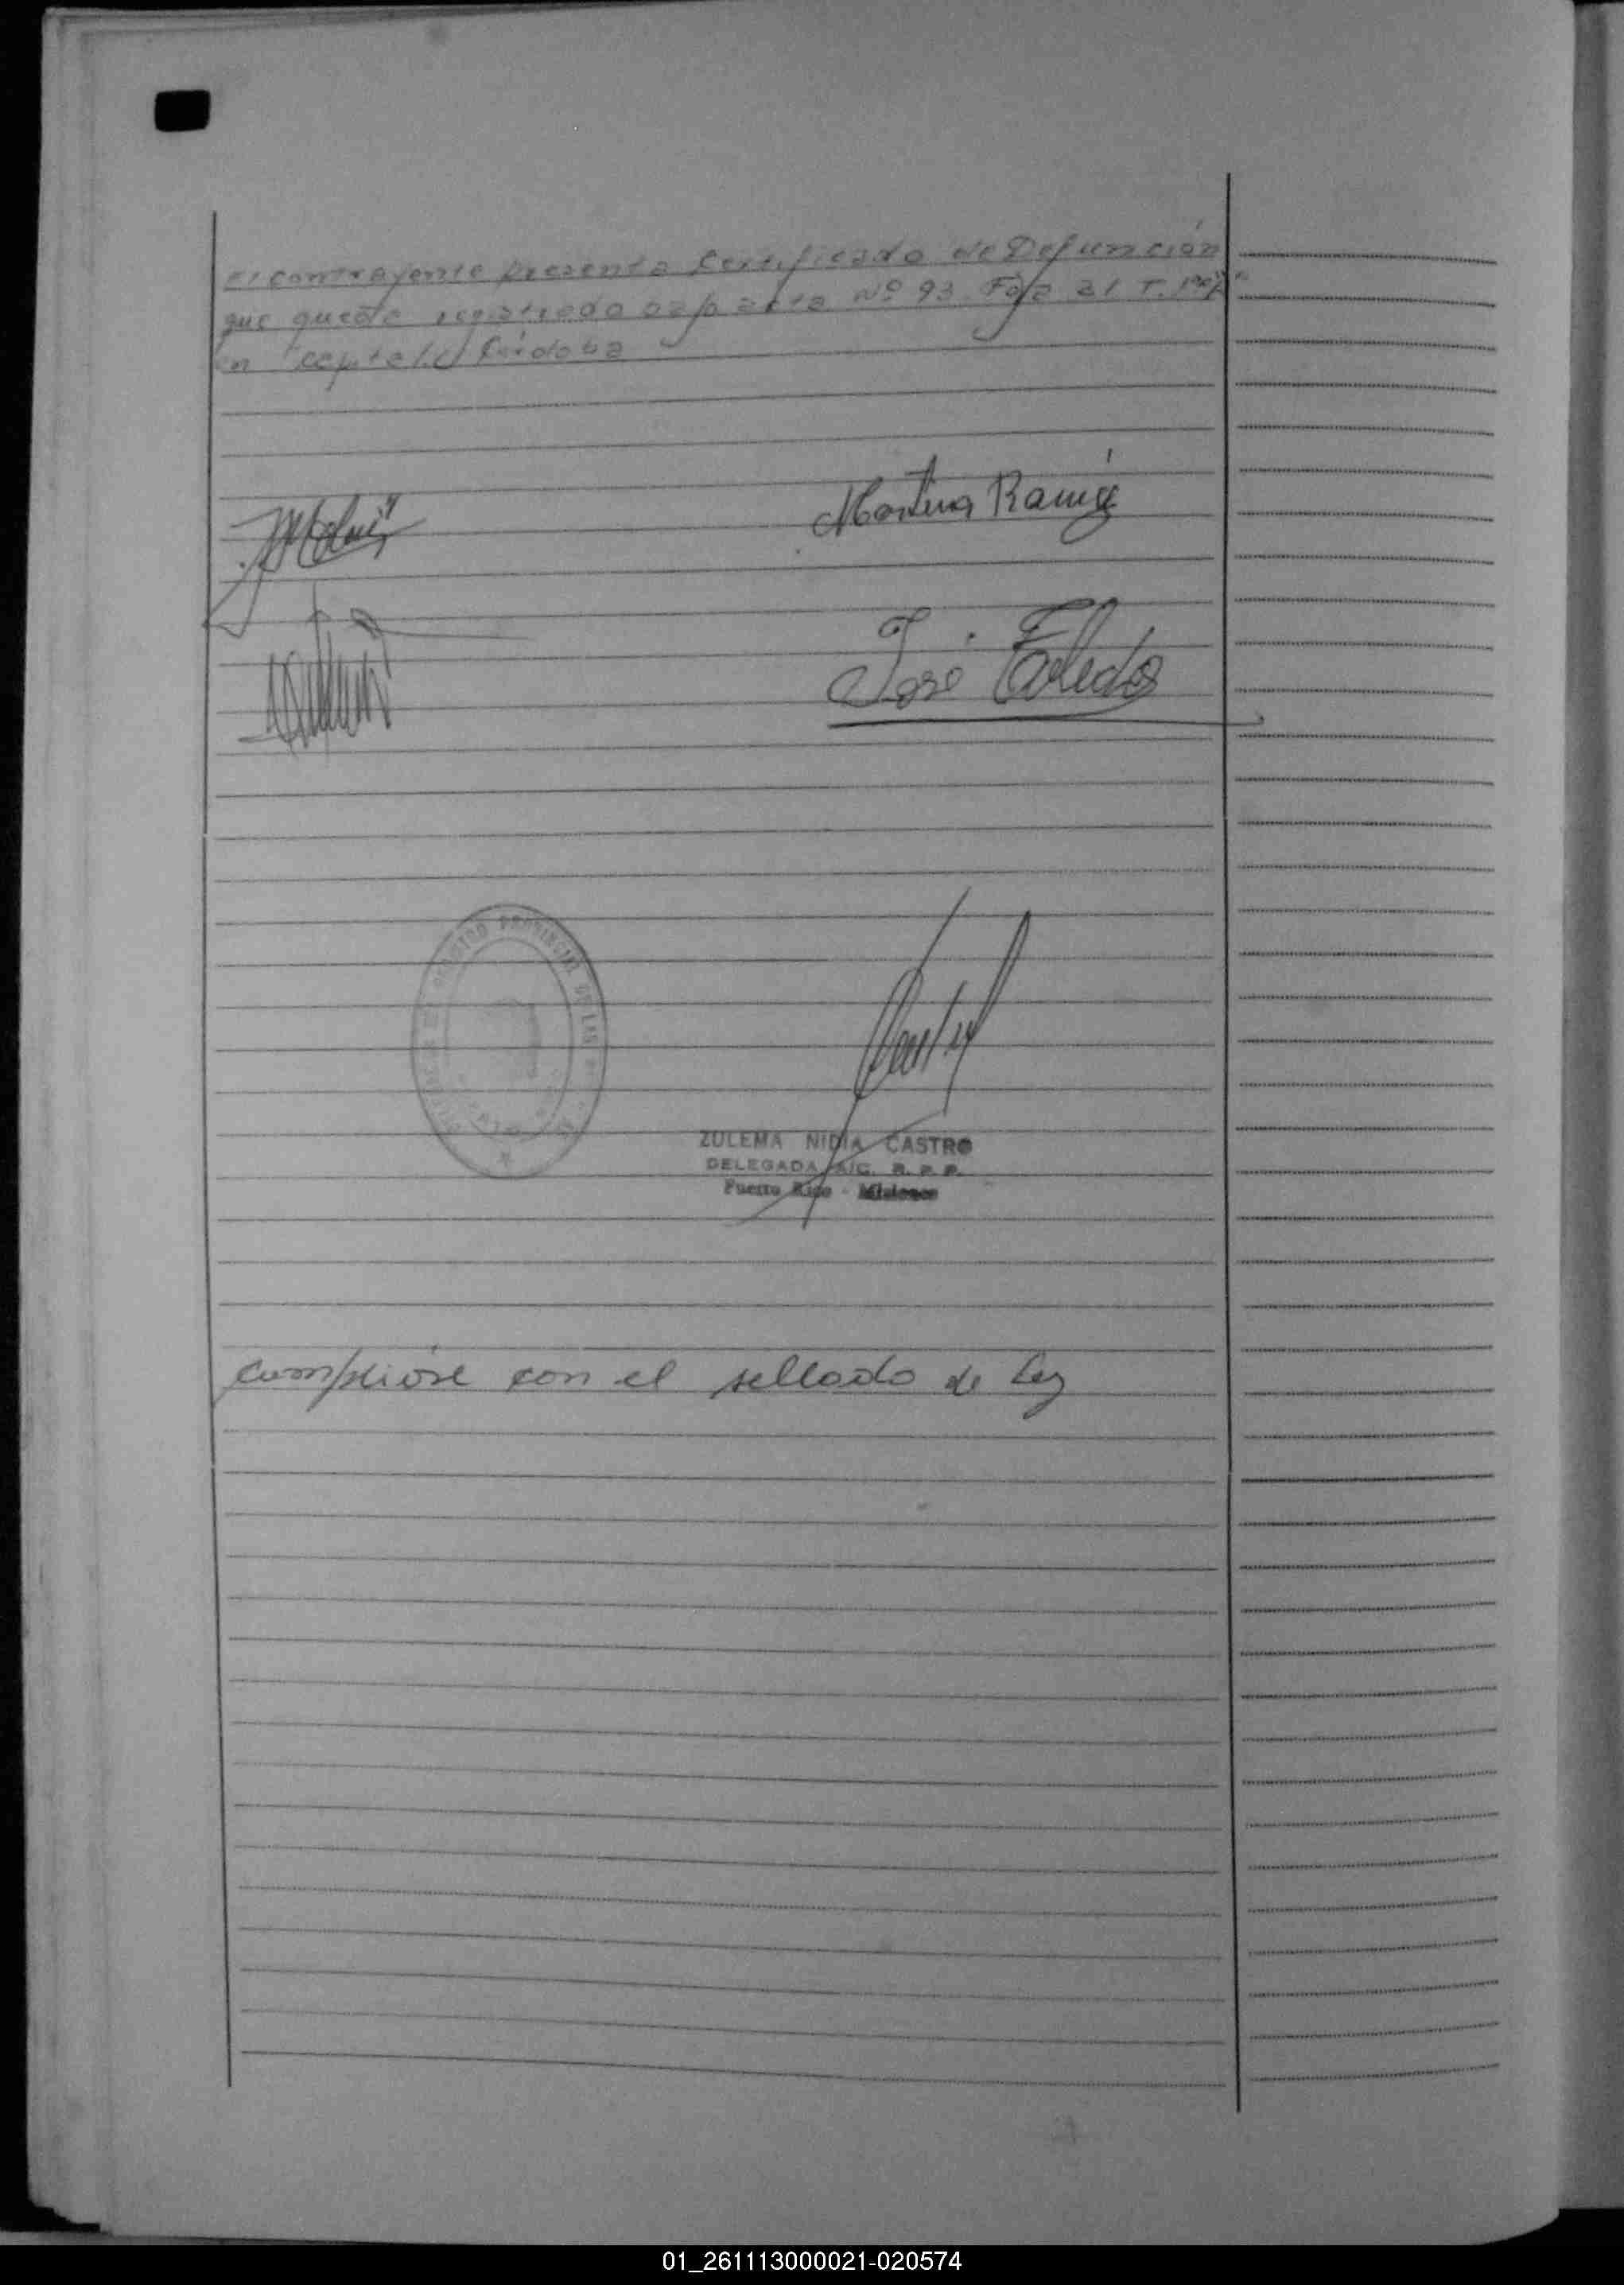 El contrayente presenta Certificado de Defunción
que queda registrado bajo acta Nº 93 Foja 31 T. 1º
en Capital Córdoba
Martina Ramirez
José Toledo
REGISTRO PROVINCIAL DE LAS
ZULEMA NIDIA CASTRO
DELEGADA A/C. R. P. P.
Puerto Rico - Misiones
Cumplióse con el sellado de Ley
01_261113000021-020574